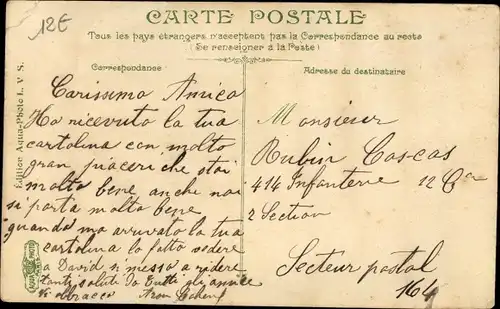 12€
CARTE POSTALE
Tous les pays étrangers n'acceptent pas la Correspondance au recto
(Se renseigner à la Poste)
Correspondance
Adresse du destinataire
Édition Aqua-Photo L. V. S.
Carissimo Amico
Ho ricevuto la tua
cartolina con molto
gran piaceri che stai
molto bene anche noi
si porta molto bene
quando ma arrivato la tua
cartolina lo fatto vedere
a David si messo a ridere
tanti saluti da tutti gli amice
Vi abbracco
Monsieur
Rubin Cascas
414 Infanterie 12 Cie
2 Section
Secteur postal
164